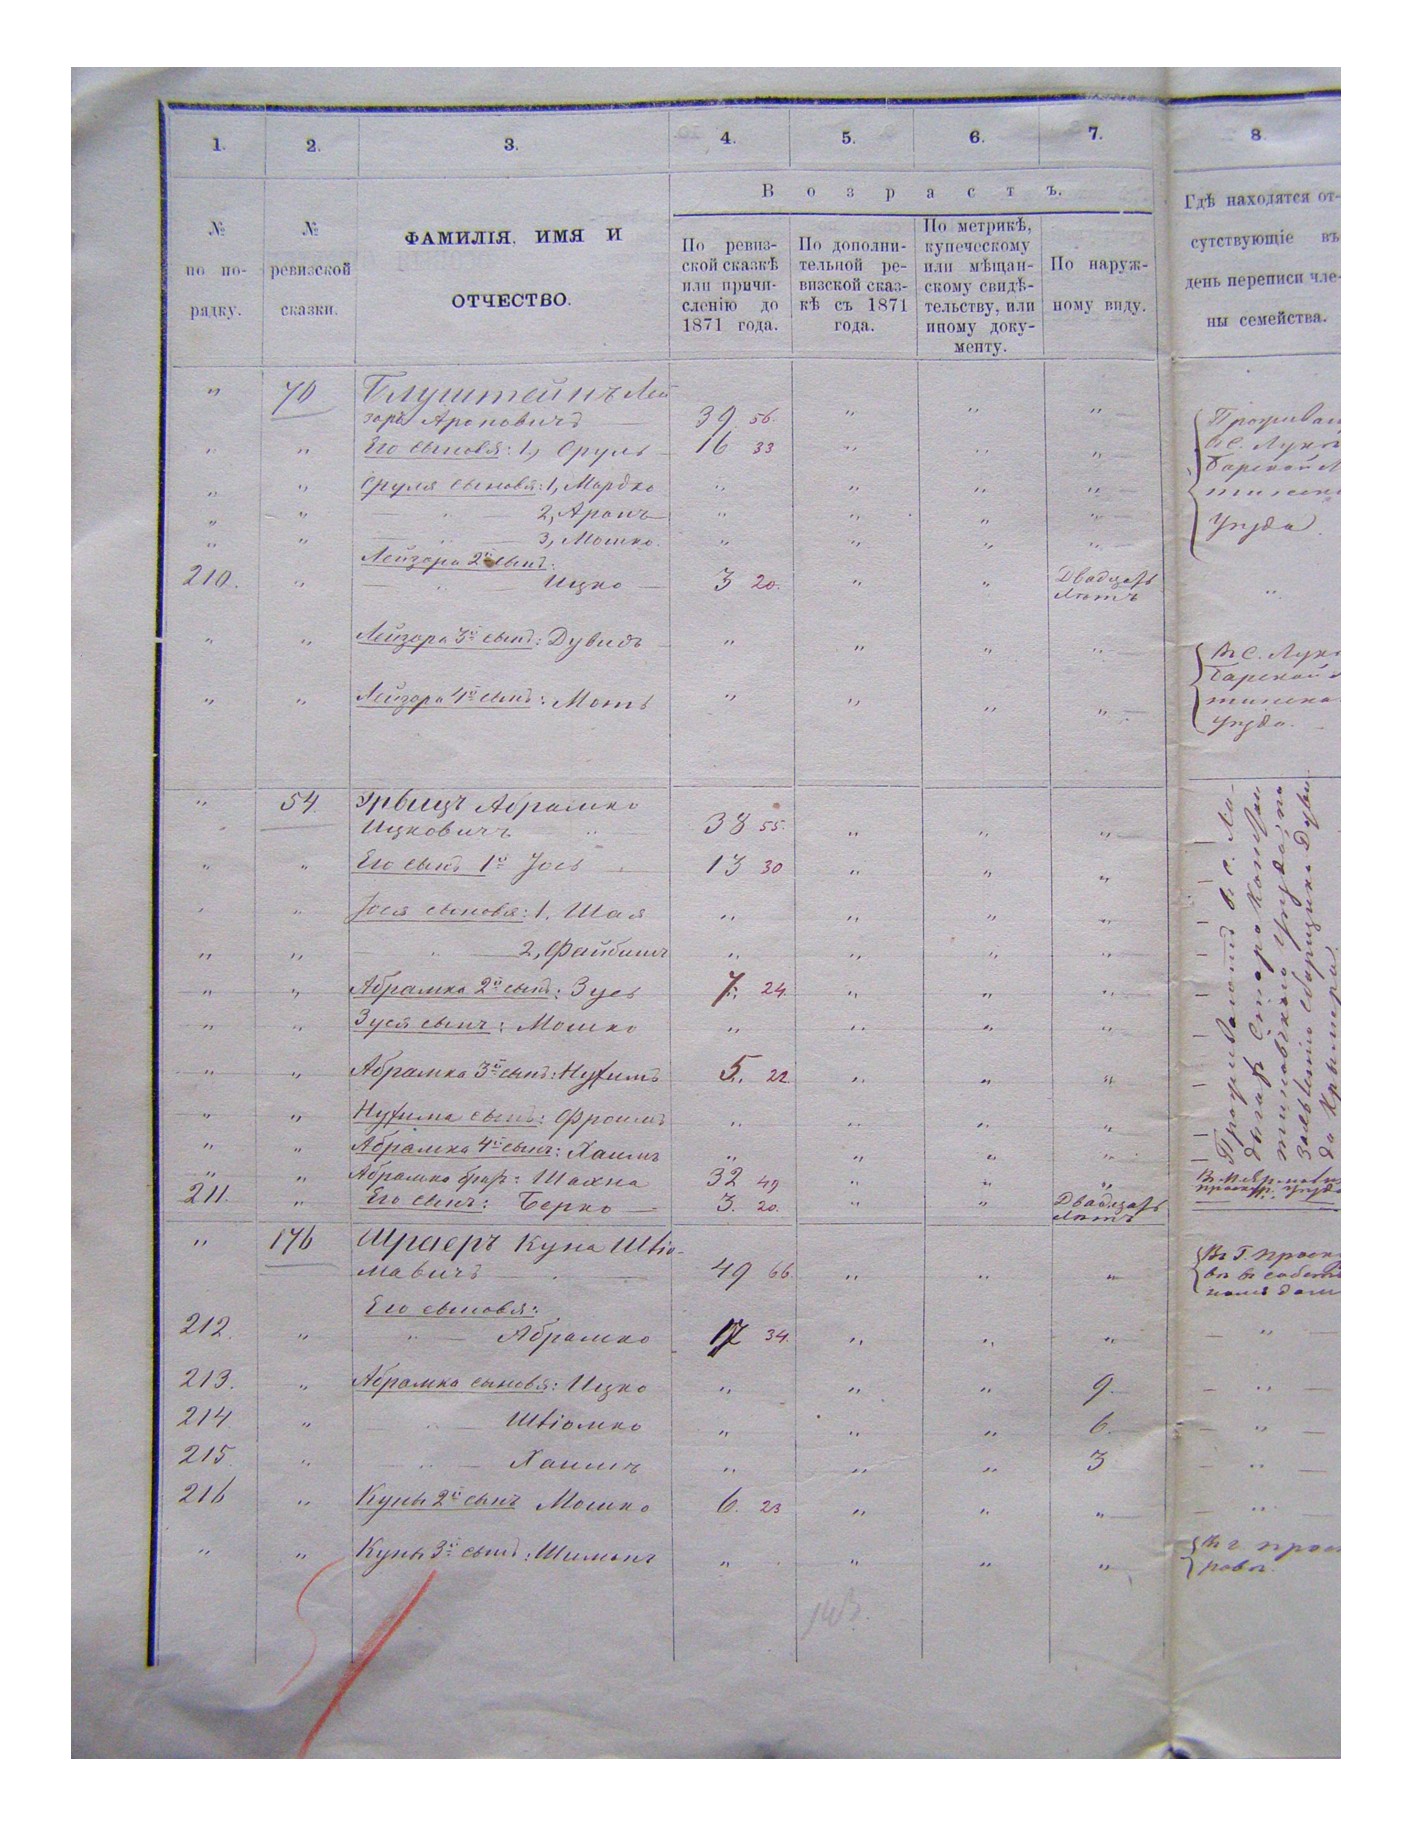 1. 2. 3. 4. 5. 6. 7. 8.
В о з р а с т ъ.
№ по порядку.
№ ревизской сказки.
ФАМИЛІЯ, ИМЯ И
ОТЧЕСТВО.
По ревиз-
ской сказкѣ
или причи-
сленію до
1871 года.
По дополни-
тельной ре-
визской сказ-
кѣ съ 1871
года.
По метрикѣ,
купеческому
или мѣщан-
скому свидѣ-
тельству, или
иному доку-
менту.
По наруж-
ному виду.
Гдѣ находятся от-
сутствующіе въ
день переписи чле-
ны семейства.
" 70 Глуштейнъ Лей
зоръ Ароновичъ 39 56. " " "
" " Его сыновья: 1, Сруль 16 33 " " "
" " Сруля сыновья: 1, Мордко " " " "
" " " 2, Аронъ " " " "
" " " 3, Мошко. " " " "
Лейзора 2й сынъ:
210. " " Ицко 3 20. " " Двадцать лѣтъ "
" " Лейзора 3й сынъ: Дувидъ " " " "
" " Лейзора 4й сынъ: Моть " " " "
Уѣзда
Въ С. Луко
Барской
Уѣзда.
" 54. Абрамко
Ицковичъ 38 55. " " "
" " Его сынъ 1й Іось 13 30 " " "
" " Іося сыновья: 1, Шая " " " "
" " " 2, Файбишъ " " " "
" " Абрамка 2й сынъ: Зусь 7. 24. " " "
" " Зуся сынъ: Мошко " " " "
" " Абрамка 3й сынъ: Нухимъ 5. 22. " " "
" " Нухима сынъ: Фроимъ " " " "
" " Абрамка 4й сынъ: Хаимъ " " " "
" " Абрамка братъ: Шахна 32 49 " " "
211. " Его сынъ: Берко 3. 20. " " Двадцать лѣтъ
Проживаютъ въ с.
" 176 Шраеръ Куна Шліо-
мовичъ 49 66 " " "
Его сыновья:
212. " " Абрамко 17 34. " " " "
213. " Абрамка сыновья: Ицко " " " 9. "
214. " " Шліомко " " " 6. "
215. " " Хаимъ " " " 3 "
216 " Куны 2й сынъ Мошко 6. 23 " " " "
" " Куны 3й сынъ: Шимонъ " " " "